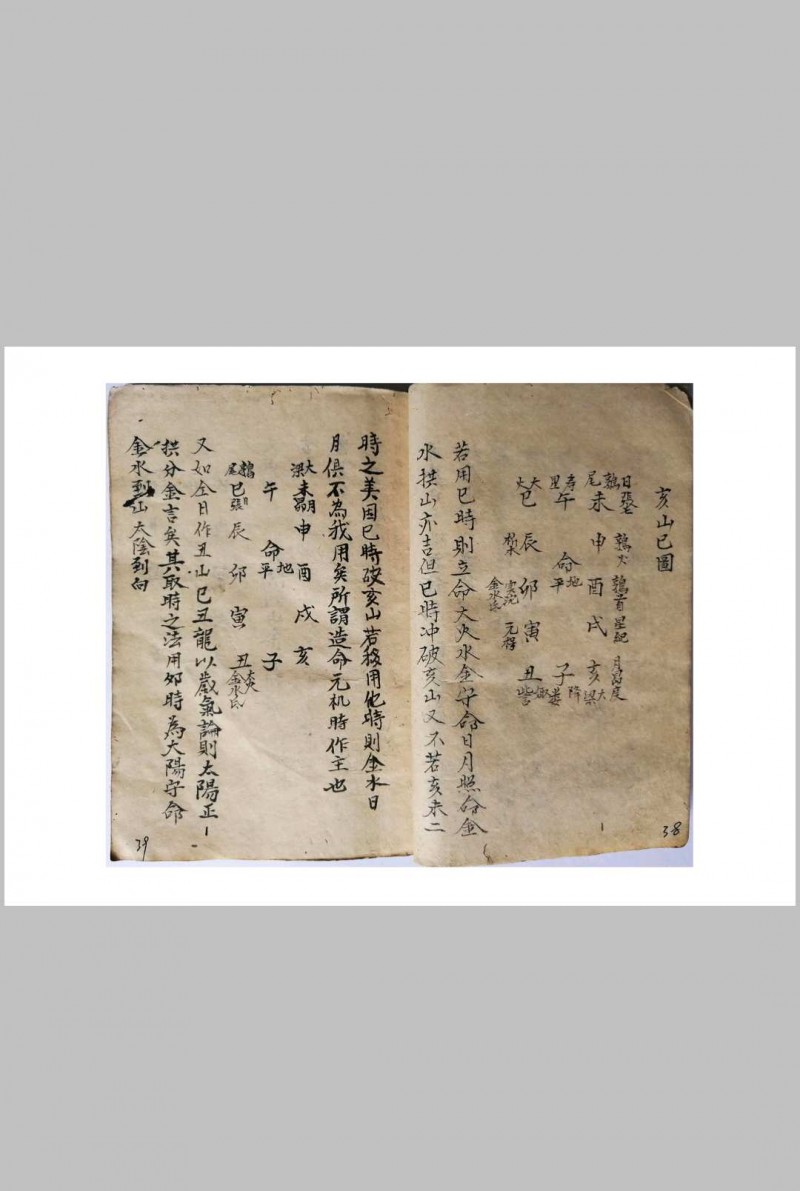 亥山巳圖
日張
鶉尾 未 申 酉 戌 亥 大梁
鶉火 鶉首 星紀
壽星 午 命 地平 子 降婁
大火 巳 辰 卯 寅 丑
元枵
金水氐
若用巳時則立命大火水金守命日月照命金
水拱山亦吉但巳時冲破亥山又不若亥未二
38
時之美因巳時破亥山若移用他時則金水日
月俱不為我用矣所謂造命元机時作主也
大梁 未 月昴 申 酉 戌 亥
午 命 地平 子
鶉尾 巳 日張 辰 卯 寅 丑 大火 金水氐
又如全日作丑山巳丑龍以歲氣論則太陽正
拱分金言矣其取時之法用夘時為太陽守命
金水到山太陰到向
39